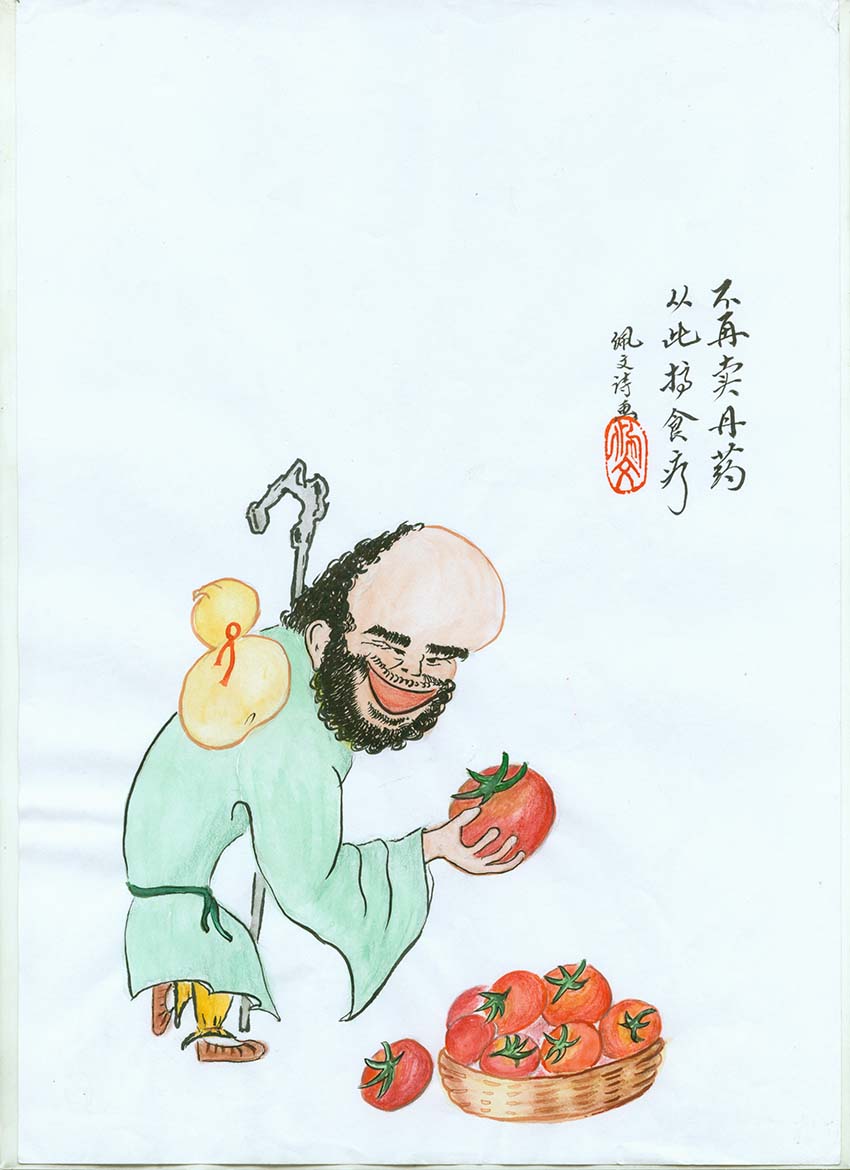 不再卖丹药
从此搞食疗
佩文诗画
佩文